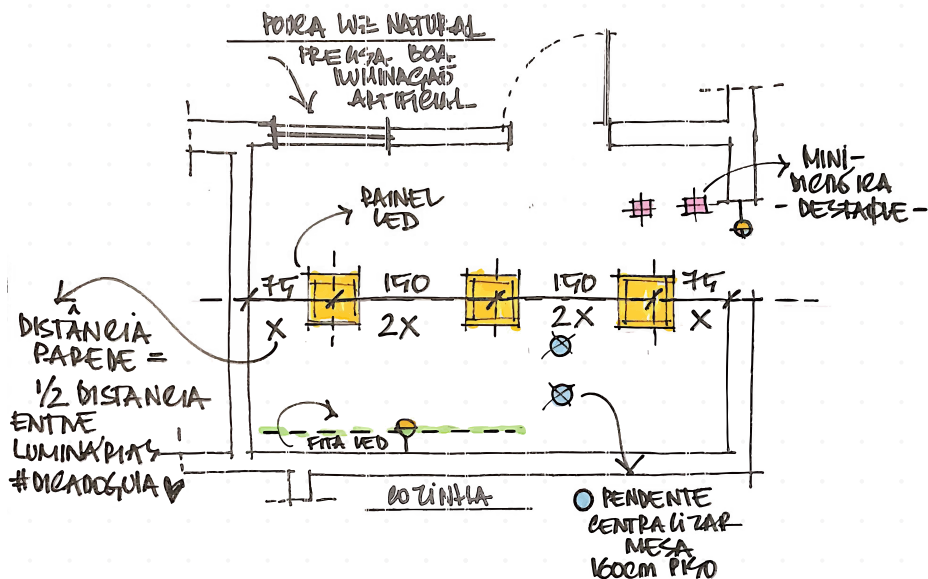 POUCA LUZ NATURAL
PRECISA BOA
ILUMINAÇÃO
ARTIFICIAL
MINI-
DICRÓICA
- DESTAQUE -
PAINEL
LED
75
150
150
75
X
2X
2X
X
DISTÂNCIA
PAREDE =
1/2 DISTANCIA
ENTRE
LUMINÁRIAS
#DICADOGUIA
FITA LED
COZINHA
PENDENTE
CENTRALIZAR
MESA
160cm PISO